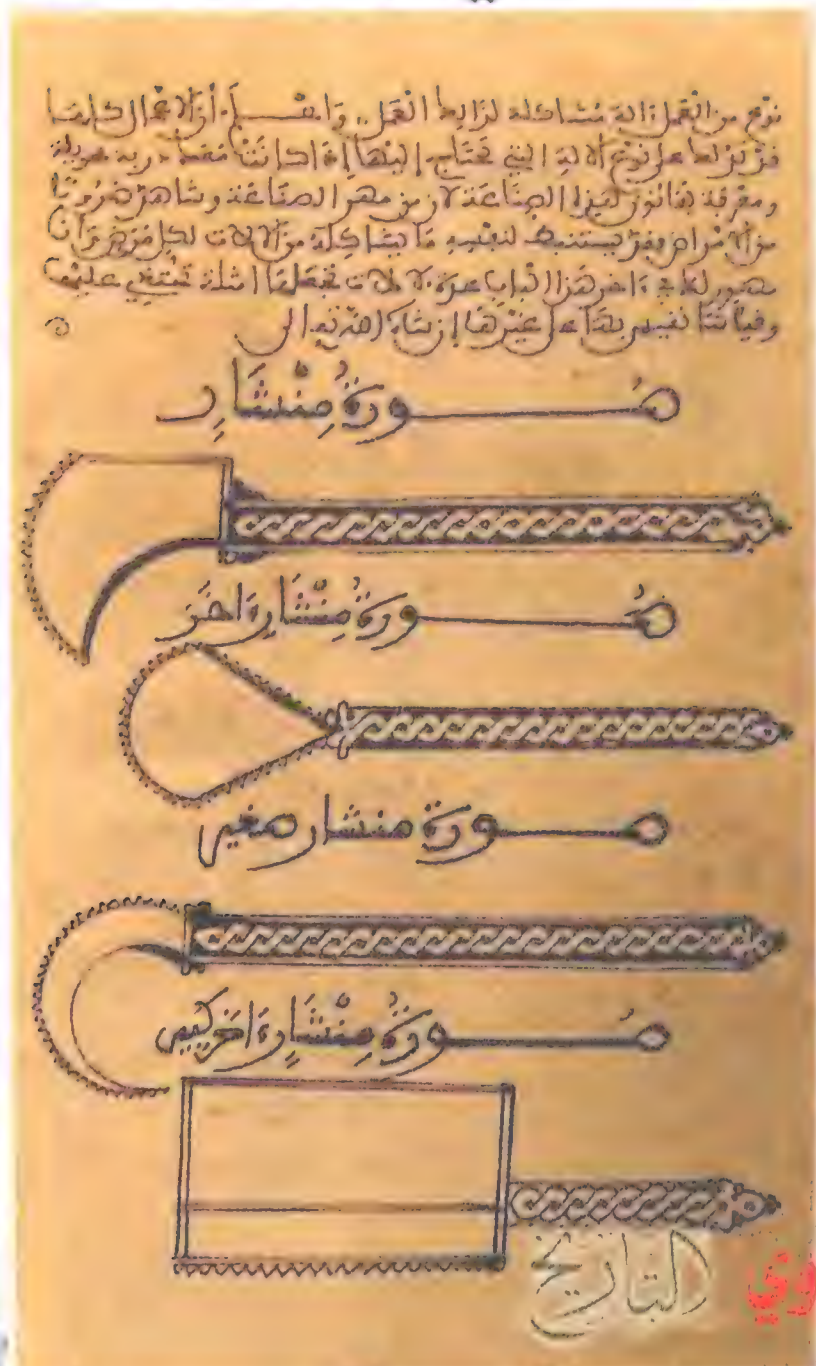 نوع من العمل آلة مشاكلة لذالك العمل واعلم أن الأعمال كلها
قد تدلك على نوع الآلة التي تحتاج إليها إذا كانت معك دربة طويلة
ومعرفة بقانون هذه الصناعة لأن من مهر الصناعة وشاهد ضروبا
من الأمراض فقد يستنبط لنفسه ما يشاكله من الآلات لكل مرض وأنا
مصور لك في آخر هذا الباب عدة آلات تجعلها أمثلة تحتذي عليها
وقياسا تقيس بها على غيرها إن شاء الله تعالى
صورة منشار
صورة منشار آخر
صورة منشار صغير
صورة منشار آخر كبير
التاريخ
وي